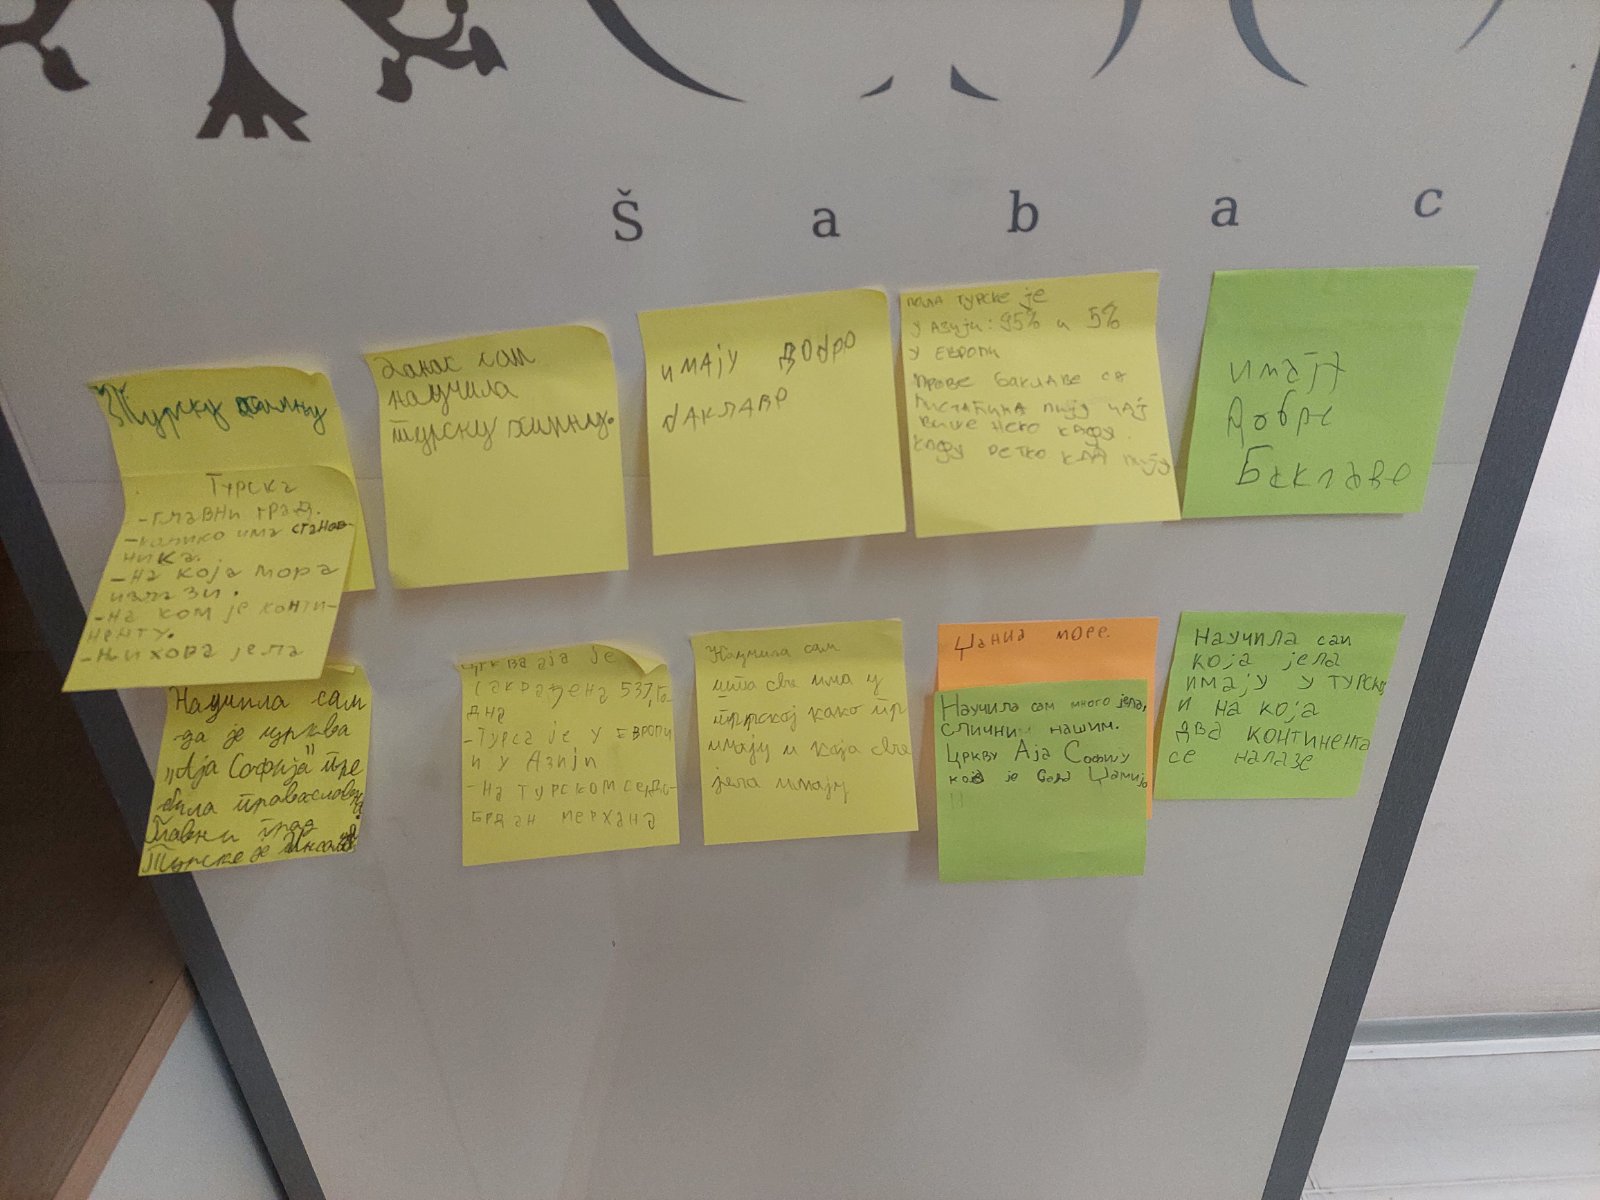 Š a b a c
Турску химну
Турска
-главни град.
-колико има станов-
ника.
-на која мора
излази.
-на ком је конти-
ненту.
-њихора јела
данас сам
научила
турску химну.
имају добро
баклавр
пола турске је
у Азији: 95% и 5%
у Европи
праве баклаве са
пију чај
више него кафу.
кафу ретко кад пију
имају
добре
баклаве
Научила сам
да је црква
„Аја Софија" пре
била православна.
Главни град
Турске је
Црква аја је
саграђена 537, го
дна
-Турса је у Европи
и у Азији
-На турском
мерхана
Научила сам
шта све има у
како
имају и која све
јела имају
Џаниа море.
Научила сам много јела,
слични нашим.
Цркву Аја Софију
која је сада Џамија
Научила сам
која јела
имају у турској
и на која
два континента
се налазе